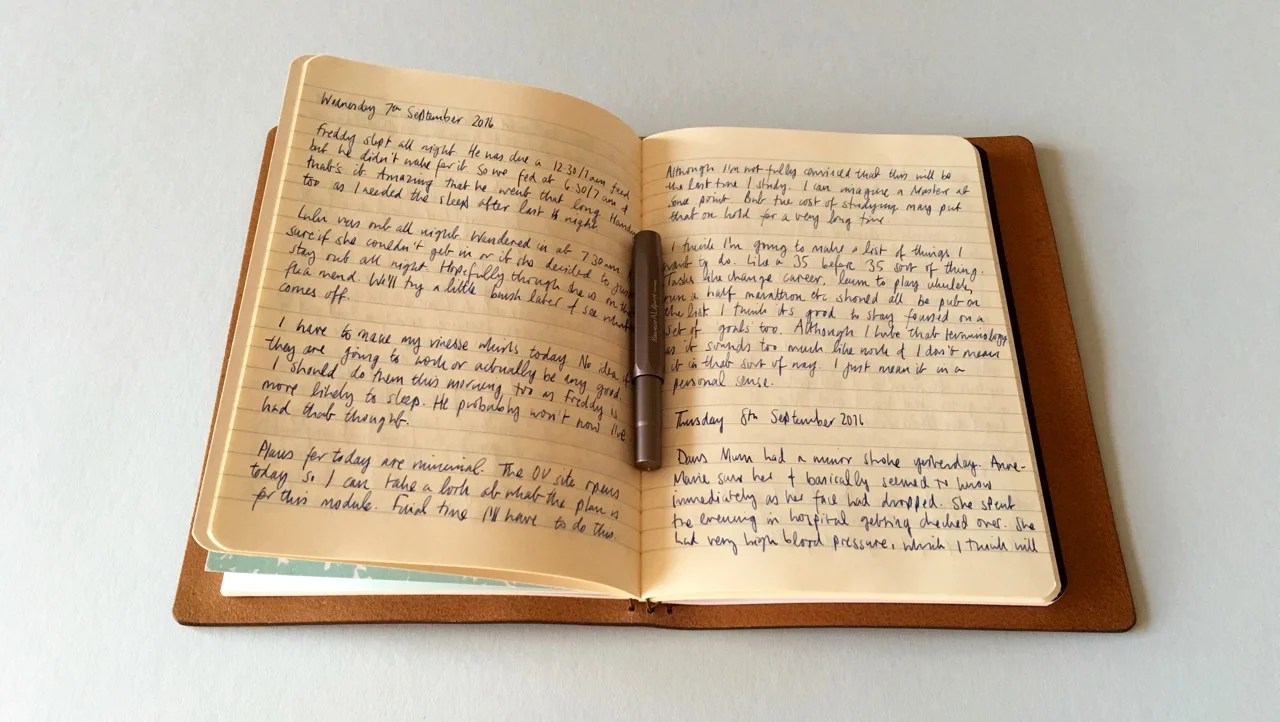 Wednesday 7th September 2016
Freddy slept all night. He was due a 12.30/1am feed
but he didn't wake for it. So we fed at 6.30/7am
that's it. Amazing that he went that long.
too as I needed the sleep after last night
Lulu was out all night. Wandered in at 7.30am
sure if she couldn't get in or if she decided to just
stay out all night. Hopefully though she is on the
flea mend. We'll try a little brush later & see what
comes off.
I have to make my vinesse whirls today. No idea if
they are going to work or actually be any good.
I should do them this morning too as Freddy is
more likely to sleep. He probably won't now I've
had that thought.
Plans for today are minimal. The OU site opens
today so I can take a look at what the plan is
for this module. Final time I'll have to do this.
Although I'm not fully convinced that this will be
the last time I study. I can imagine a Master at
some point. But the cost of studying may put
that on hold for a very long time
I think I'm going to make a list of things I
want to do. Like a 35 before 35 sort of thing.
Tasks like change career, learn to play ukulele,
run a half marathon etc should all be put on
the list. I think it's good to stay focused on a
set of goals too. Although I hate that terminology
as it sounds too much like work & I don't mean
it in that sort of way. I just mean it in a
personal sense.
Thursday 8th September 2016
Daves Mum had a minor stroke yesterday. Anne-
Marie saw her & basically seemed to know
immediately as her face had dropped. She spent
the evening in hospital getting checked over. She
had very high blood pressure, which I think will